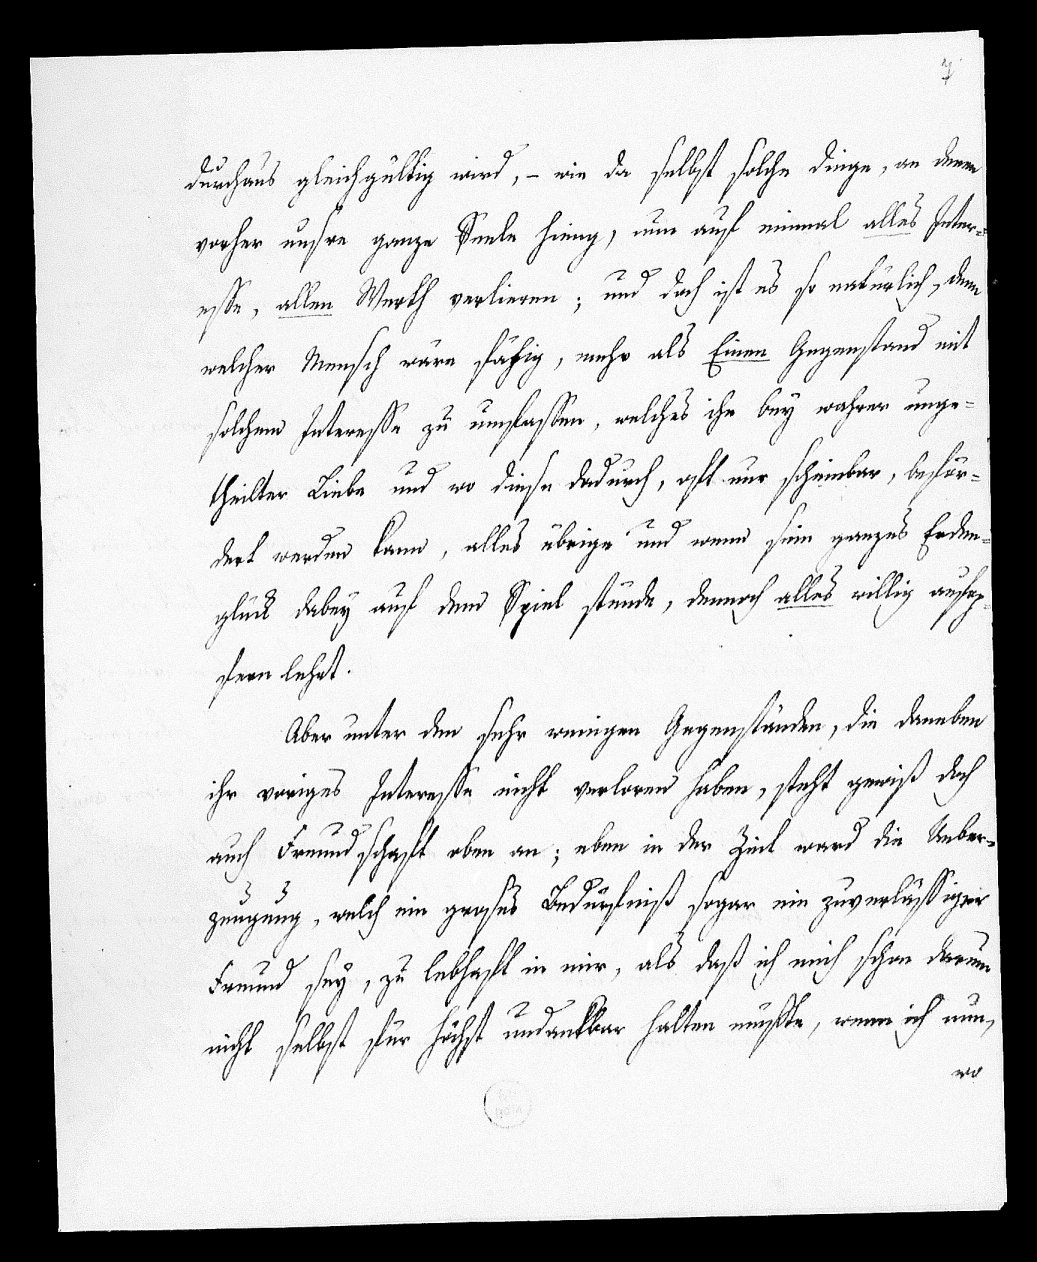 durchaus gleichgültig wird, – wie da selbst solche Dinge, an denen
vorher unsre ganze Seele hieng, nun auf einmal alles Inter=
esse, allen Werth verlieren; und doch ist es so natürlich, denn
welcher Mensch wäre fähig, mehr als Einen Gegenstand mit
solchem Interesse zu umfassen, welches ihn bey wahrer unge=
theilter Liebe und wo diese dadurch, oft nur scheinbar, beför=
dert werden kann, alles übrige und wenn sein ganzes Erden=
glück dabey auf dem Spiel stünde, dennoch alles willig aufop=
fern lehrt.
Aber unter den sehr wenigen Gegenständen, die daneben
ihr voriges Interesse nicht verloren haben, steht gewiß doch
auch Freundschaft oben an; eben in der Zeit ward die Ueber=
zeugung, welch ein großes Bedürfniß sogar ein zuverlässiger
Freund sey, zu lebhaft in mir, als daß ich mich schon darum
nicht selbst für höchst undankbar halten müßte, wenn ich nun,
wo